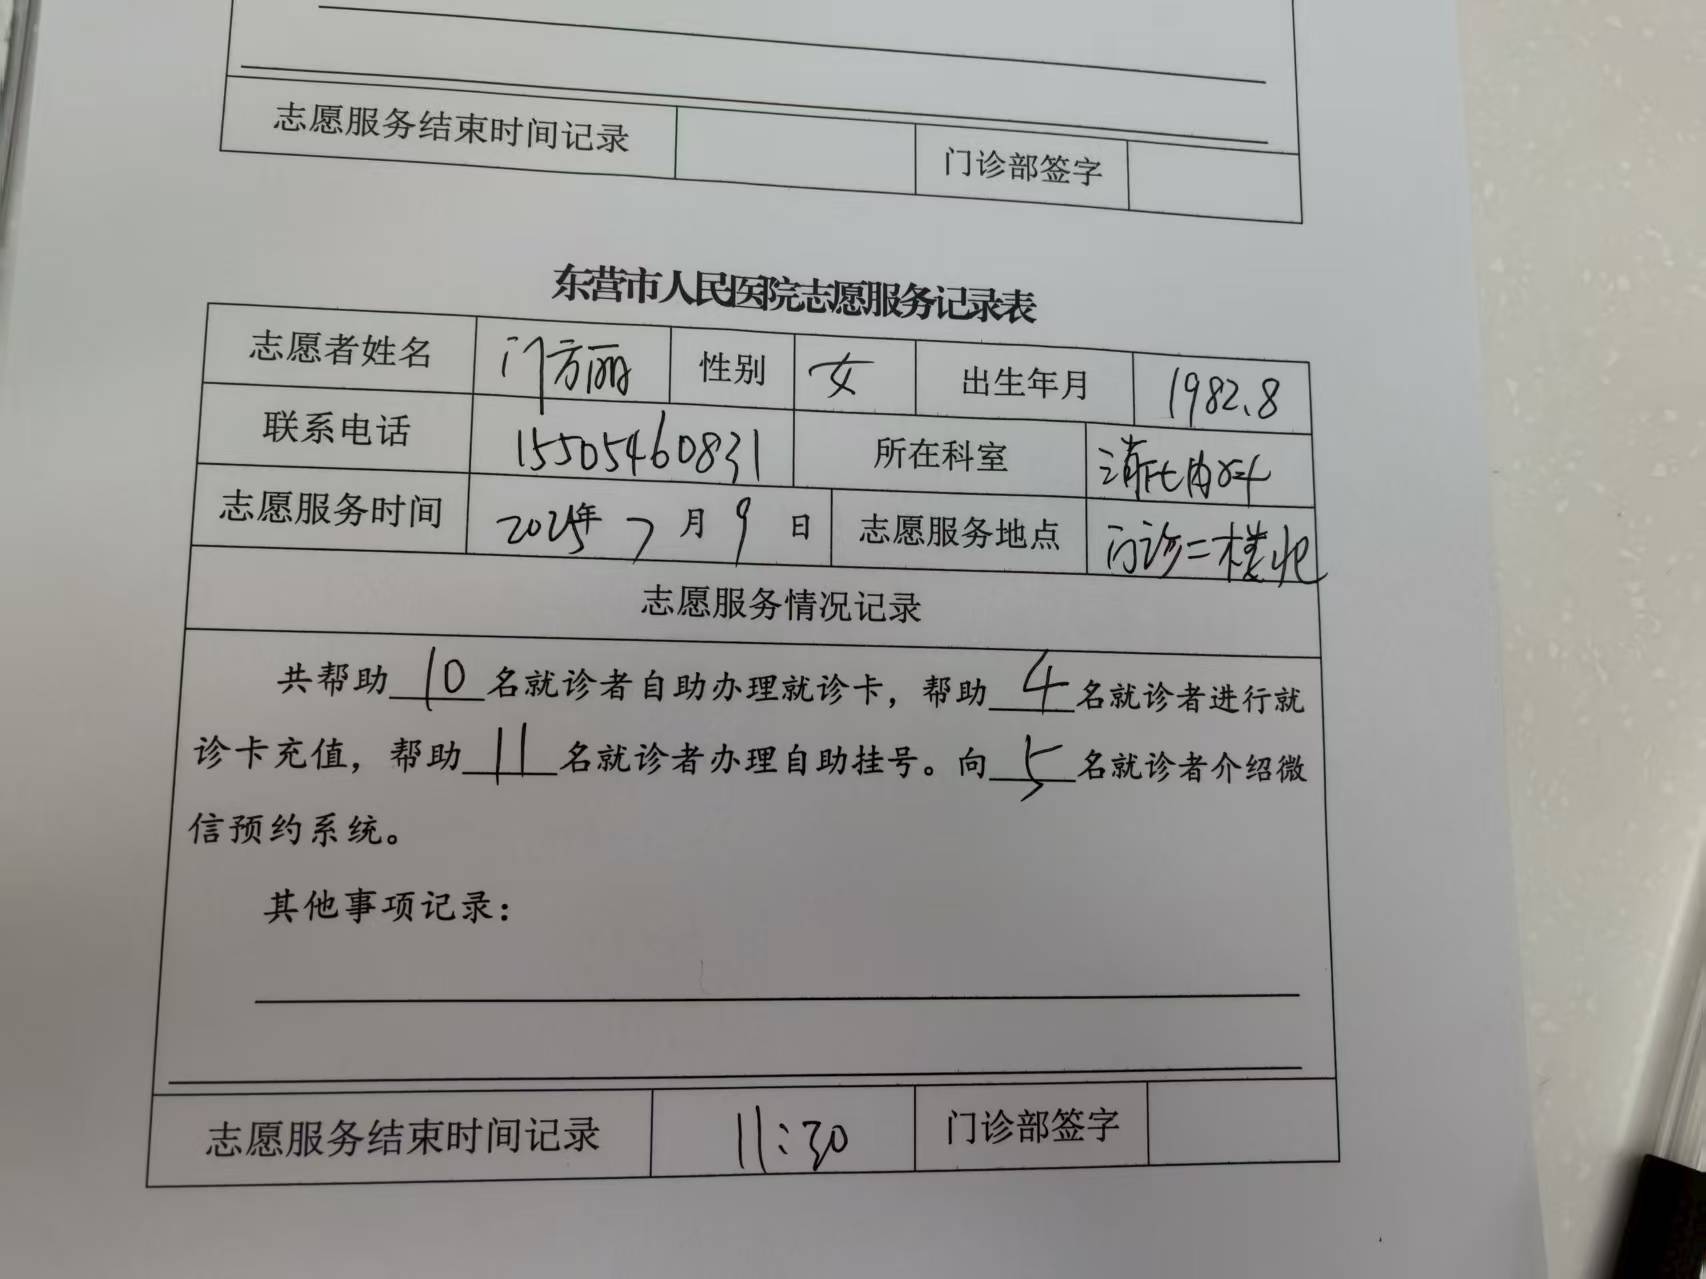 志愿服务结束时间记录 门诊部签字
东营市人民医院志愿服务记录表
志愿者姓名 门方丽 性别 女 出生年月 1982.8
联系电话 15505460831 所在科室 消化内科
志愿服务时间 2025年7月9日 志愿服务地点 门诊二楼北
志愿服务情况记录
共帮助10名就诊者自助办理就诊卡，帮助4名就诊者进行就
诊卡充值，帮助11名就诊者办理自助挂号。向5名就诊者介绍微
信预约系统。
其他事项记录：
志愿服务结束时间记录 11:30 门诊部签字